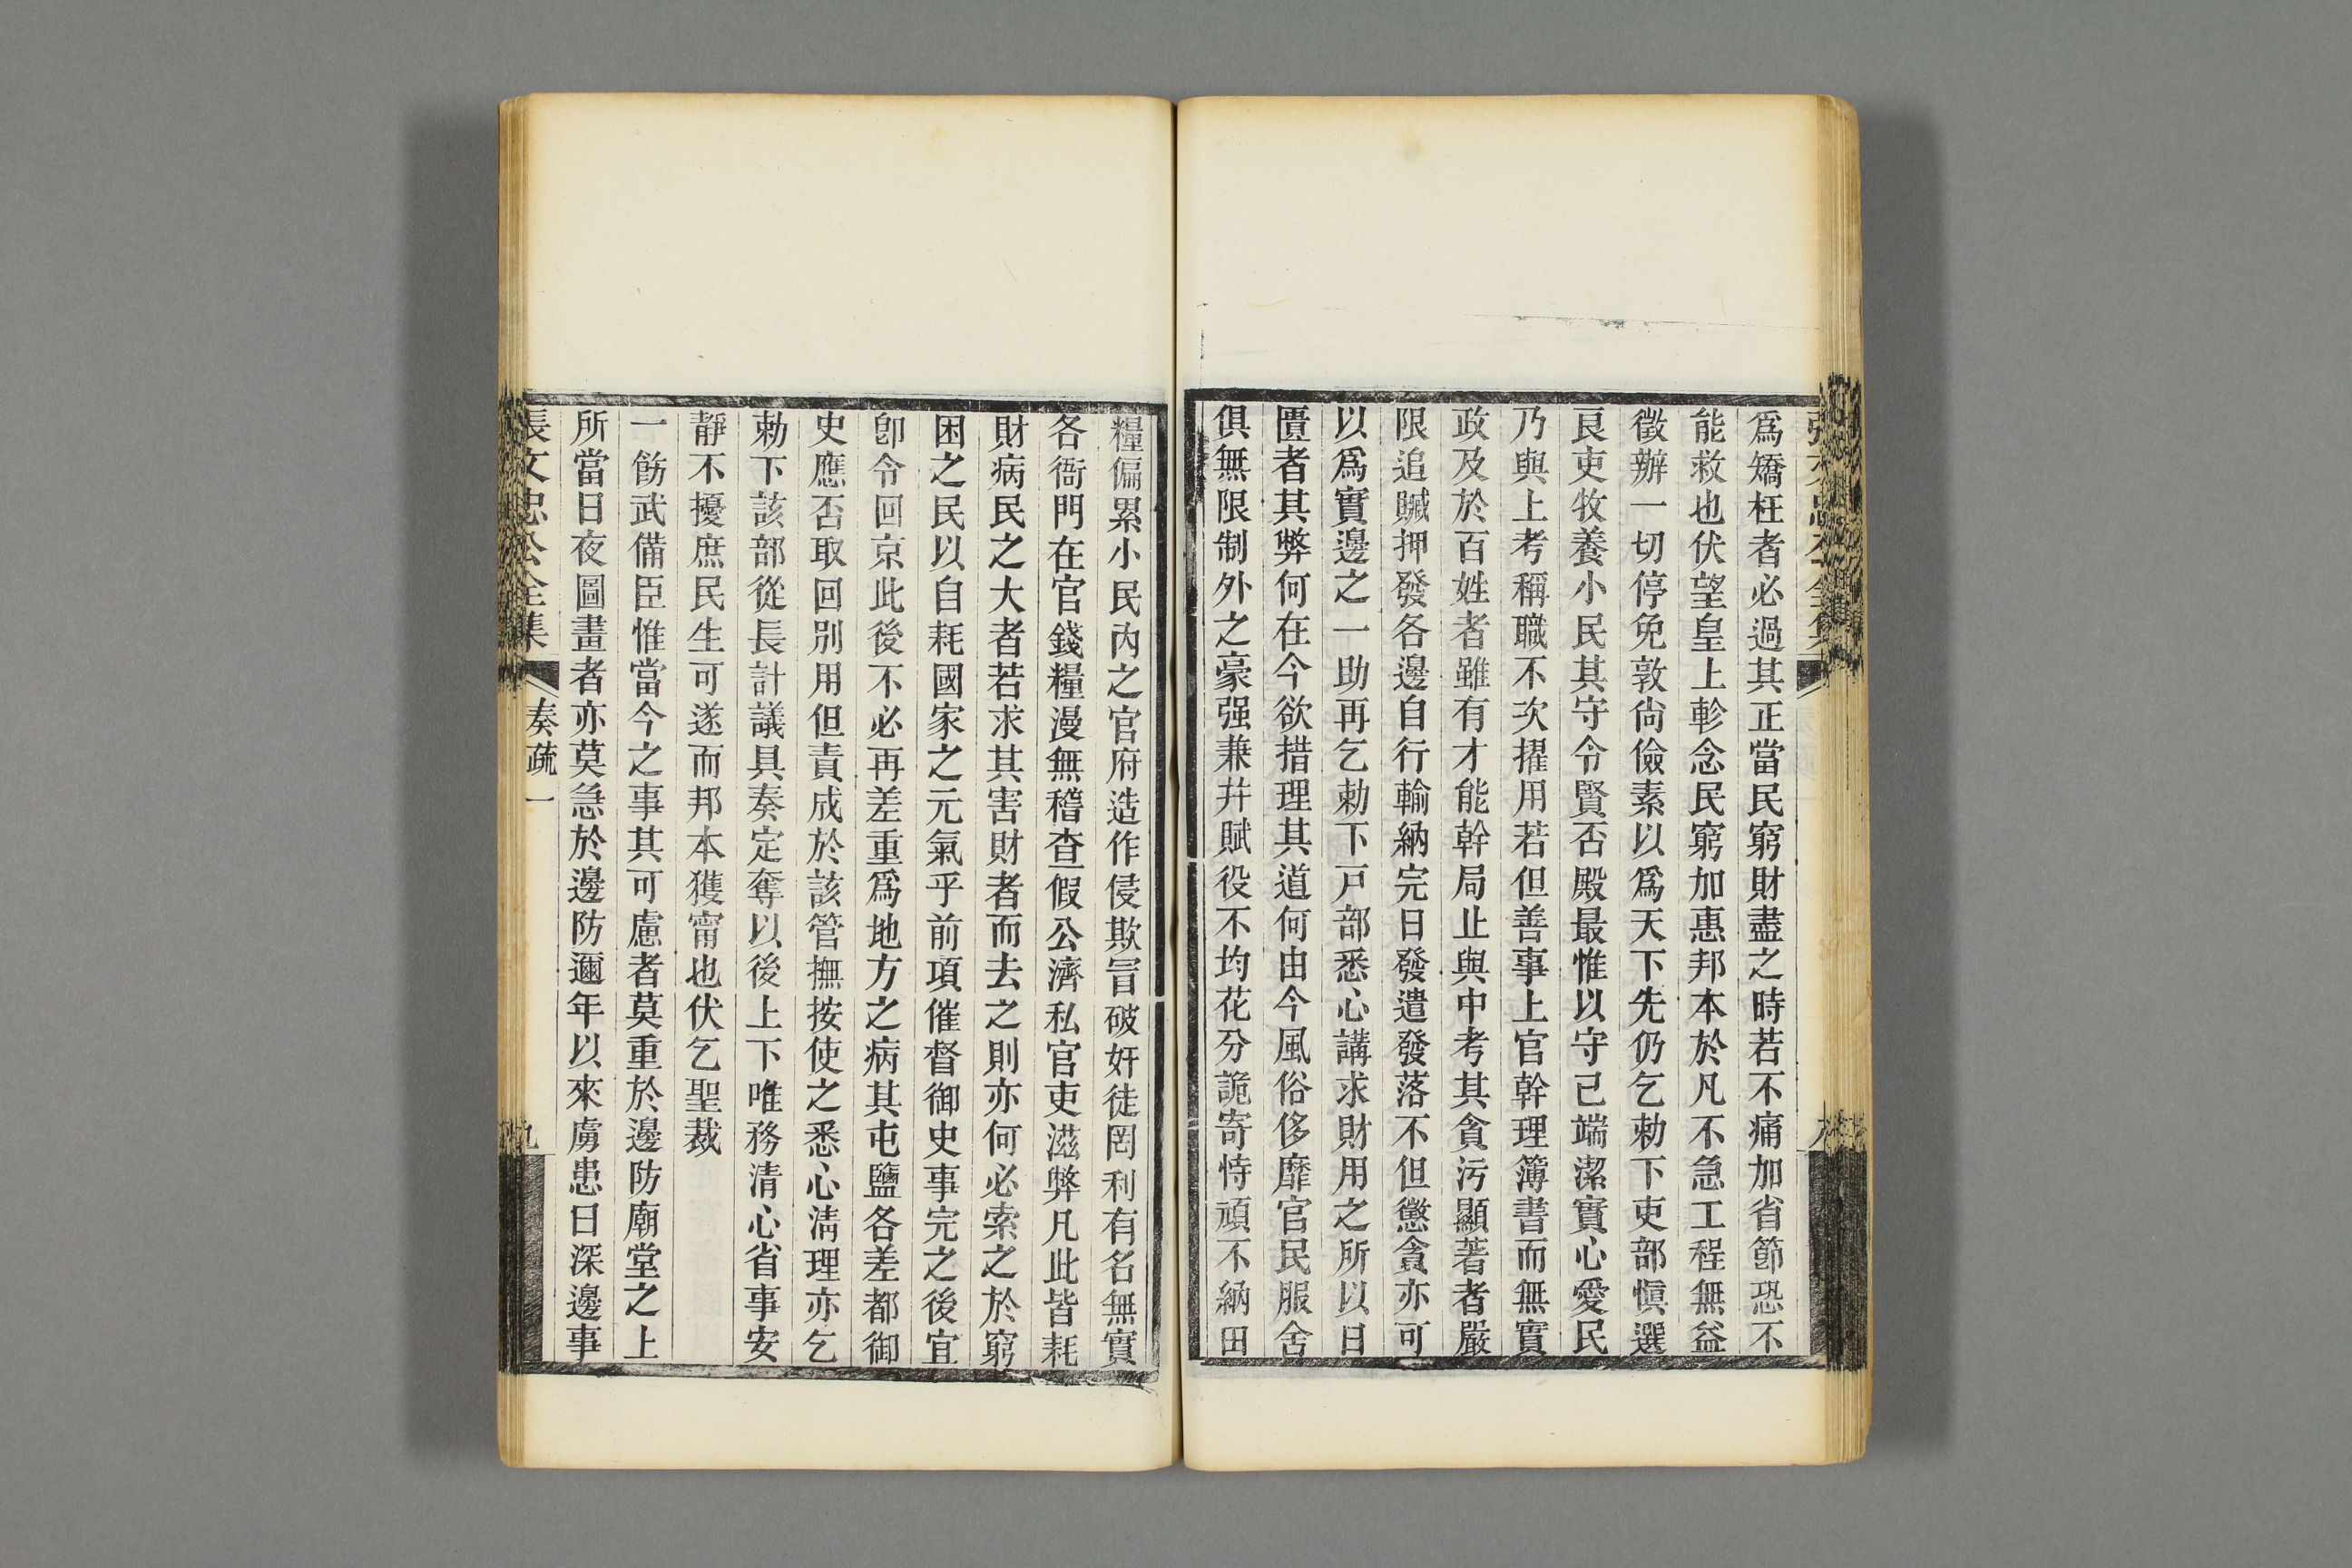 爲矯枉者必過其正當民窮財盡之時若不痛加省節恐不
能救也伏望皇上軫念民窮加惠邦本於凡不急工程無益
徵辦一切停免敦尙儉素以爲天下先仍乞勅下吏部愼選
良吏牧養小民其守令賢否殿最惟以守己端潔實心愛民
乃與上考稱職不次擢用若但善事上官幹理簿書而無實
政及於百姓者雖有才能幹局止與中考其貪污顯著者嚴
限追贓押發各邊自行輸納完日發遣發落不但懲貪亦可
以爲實邊之一助再乞勅下戸部悉心講求財用之所以日
匱者其弊何在今欲措理其道何由今風俗侈靡官民服舍
俱無限制外之豪强兼并賦役不均花分詭寄恃頑不納田
糧偏累小民內之官府造作侵欺冒破奸徒罔利有名無實
各衙門在官錢糧漫無稽查假公濟私官吏滋弊凡此皆耗
財病民之大者若求其害財者而去之則亦何必索之於窮
困之民以自耗國家之元氣乎前項催督御史事完之後宜
卽令回京此後不必再差重爲地方之病其屯鹽各差都御
史應否取回別用但責成於該管撫按使之悉心淸理亦乞
勅下該部從長計議具奏定奪以後上下唯務淸心省事安
靜不擾庶民生可遂而邦本獲甯也伏乞聖裁
一飭武備臣惟當今之事其可慮者莫重於邊防廟堂之上
所當日夜圖畫者亦莫急於邊防邇年以來虜患日深邊事
張文忠公全集
奏疏一
九